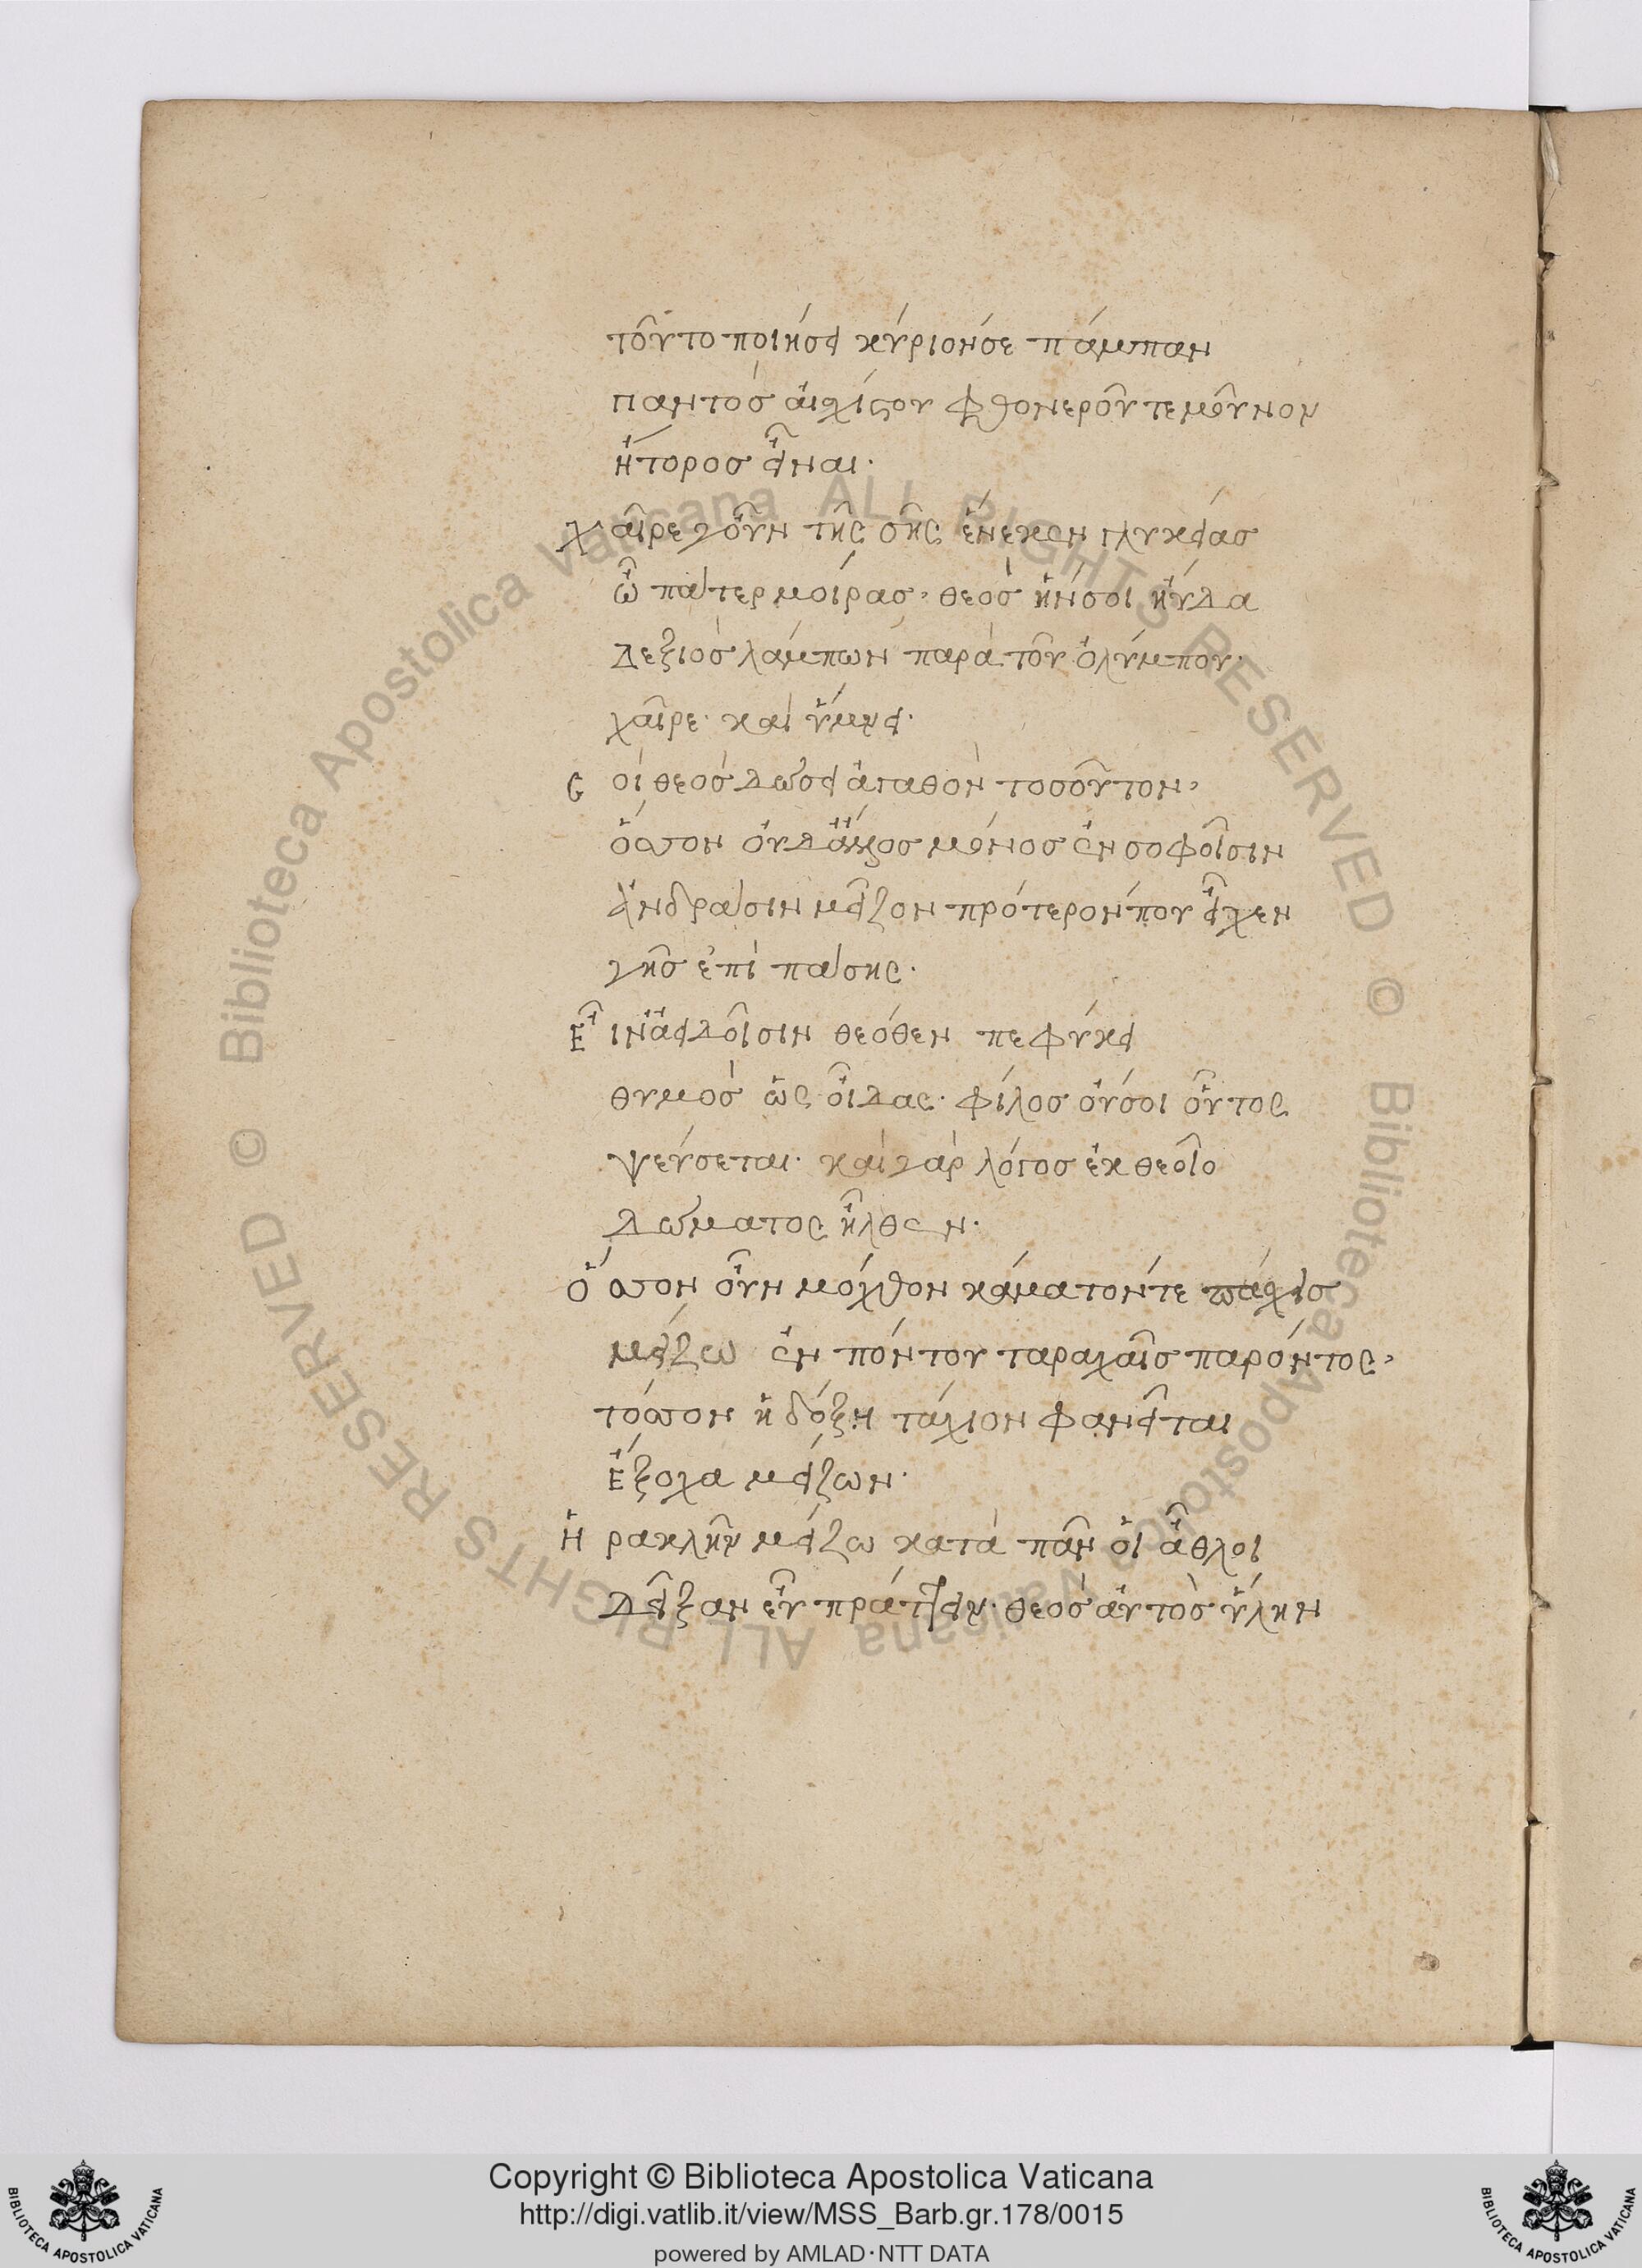 τοῦτο ποιήσει κύριονσε πάμπαν
παντὸς αἰσχίστου φθονεροῦ τε μοῦνον
ἤτορος εἶναι.
χαῖρε γοῦν τῆς σῆς ἕνεκεν γλυκείας
ὦ πάτερ μοίρας, θεὸς ἥν σοι ηὖδα
δεξιὸς λάμπων παρὰ τοῦ ὀλύμπου.
χαῖρε. καὶ ὕμνει.
Σοὶ θεὸς δώσει ἀγαθὸν τοσοῦτον,
ὅσσον οὐδ' ἄλλος μόνος ἐν σοφοῖσιν
ἀνδράσιν μεῖζον πρότερόν που εἶχεν
γῆς ἐπὶ πάσης.
Εἶιν ἀειδοῖσιν θεόθεν πεφύκει
θυμὸς ὡς οἶδας. φίλος οὔ σοι οὗτος
ψεύσεται. καὶ γὰρ λόγος ἐκ θεοῖο
δώματος ἦλθεν.
Ὅσσον οὖν μόχθον κάματόν τε πάσχεις
μείζω ἐν πόντου ταραχαῖς παρόντος,
τόσσον ἡ δόξη τάχιον φανεῖται
ἔξοχα μείζων.
Ἡρακλῆν μείζω κατὰ πᾶν οἱ ἆθλοι
δεῖξαν εὖ πράττειν. θεὸς αὐτὸς ὕλην
Copyright © Biblioteca Apostolica Vaticana
http://digi.vatlib.it/view/MSS_Barb.gr.178/0015
powered by AMLAD·NTT DATA
BIBLIOTECA APOSTOLICA VATICANA
BIBLIOTECA APOSTOLICA VATICANA
© Biblioteca Apostolica Vaticana ALL RIGHTS RESERVED
© Biblioteca Apostolica Vaticana ALL RIGHTS RESERVED